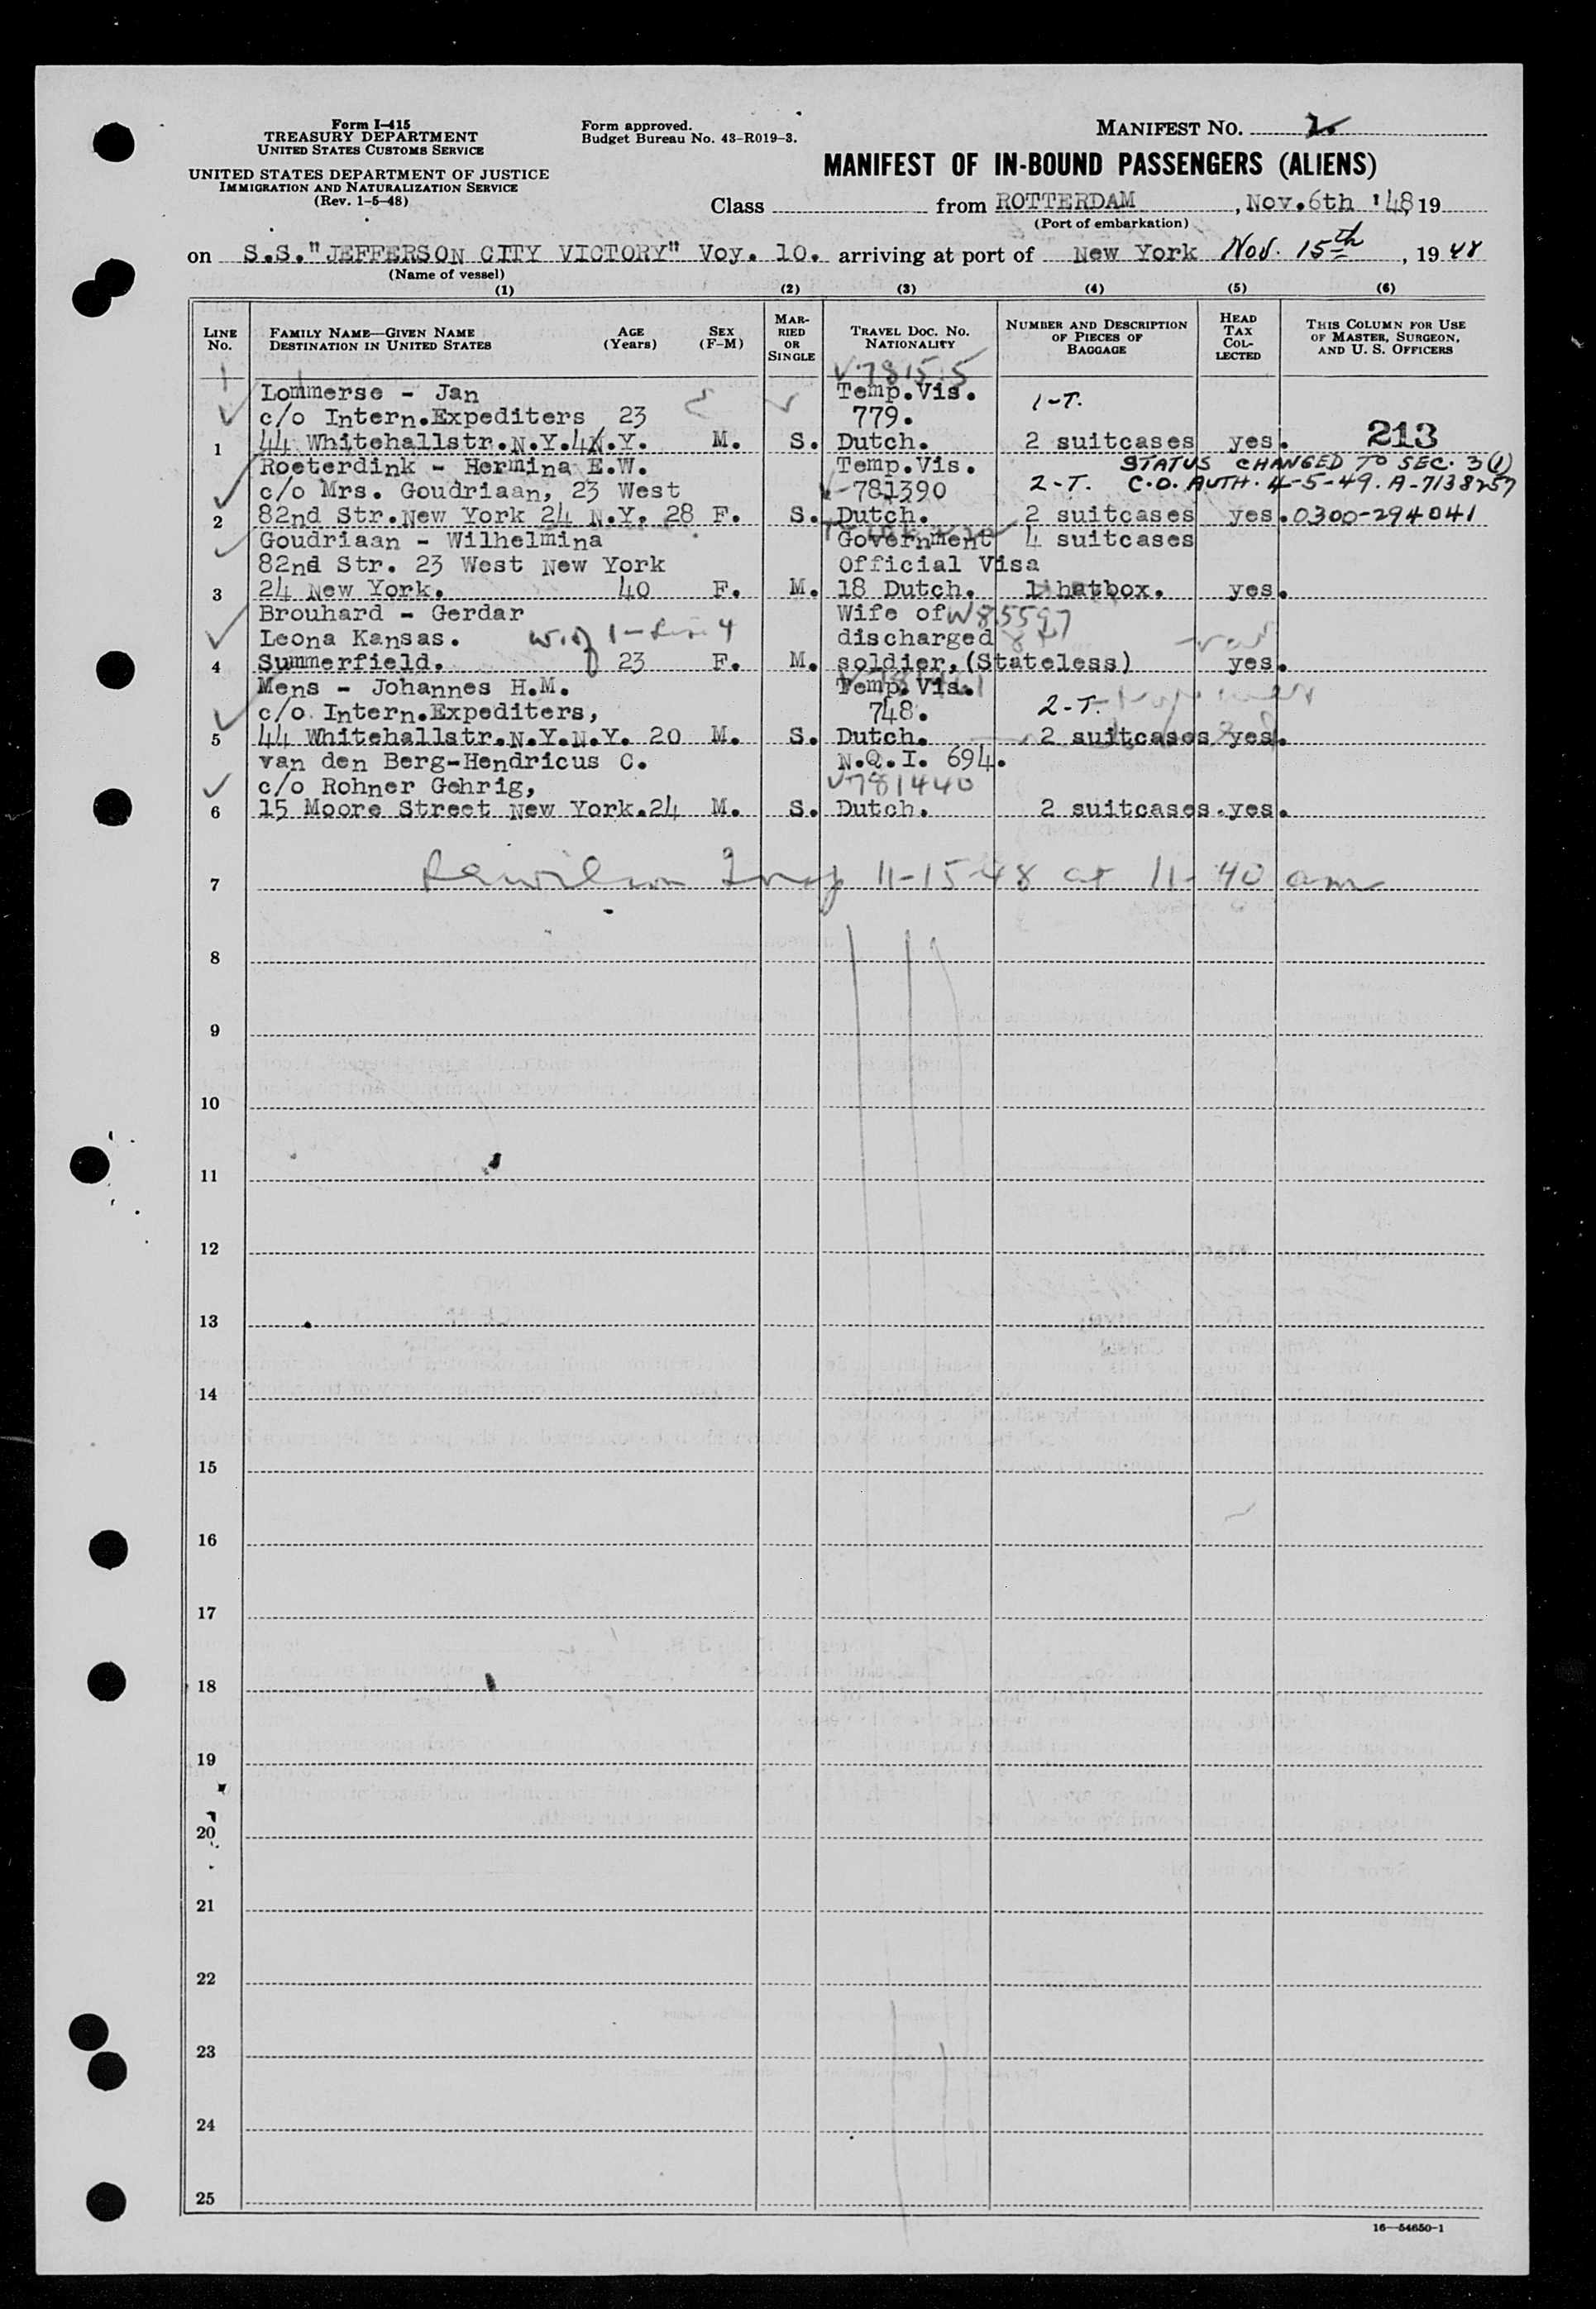 Form I-415
TREASURY DEPARTMENT
UNITED STATES CUSTOMS SERVICE
UNITED STATES DEPARTMENT OF JUSTICE
IMMIGRATION AND NATURALIZATION SERVICE
(Rev. 1-5-48)
Form approved.
Budget Bureau No. 43-R019-3.
MANIFEST NO.
MANIFEST OF IN-BOUND PASSENGERS (ALIENS)
Class from ROTTERDAM, Nov.6th '48 19
(Port of embarkation)
on S.S."JEFFERSON CITY VICTORY" Voy. 10. arriving at port of New York Nov. 15th, 1948
(Name of vessel)
(1) (2) (3) (4) (5) (6)
LINE NO. FAMILY NAME—GIVEN NAME DESTINATION IN UNITED STATES AGE (Years) SEX (F-M) MARRIED OR SINGLE TRAVEL DOC. NO. NATIONALITY NUMBER AND DESCRIPTION OF PIECES OF BAGGAGE HEAD TAX COLLECTED THIS COLUMN FOR USE OF MASTER, SURGEON, AND U. S. OFFICERS
Lommerse - Jan Temp.Vis.
c/o Intern.Expediters 23 779. 1-T.
1 44 Whitehallstr.N.Y.4N.Y. M. S. Dutch. 2 suitcases yes. 213
Roeterdink - Hermina E.W. Temp.Vis. STATUS CHANGED TO SEC. 3(1)
c/o Mrs. Goudriaan, 23 West V-781390 2-T. C.O. AUTH. 4-5-49. A-7138257
2 82nd Str.New York 24 N.Y. 28 F. S. Dutch. 2 suitcases yes. 0300-294041
Goudriaan - Wilhelmina Government 4 suitcases
82nd Str. 23 West New York Official Visa
3 24 New York. 40 F. M. 18 Dutch. 1 hatbox. yes.
Brouhard - Gerdar Wife of
Leona Kansas. discharged
4 Summerfield. 23 F. M. soldier.(Stateless) yes.
Mens - Johannes H.M. Temp.Vis.
c/o Intern.Expediters, 748. 2-T.
5 44 Whitehallstr.N.Y.N.Y. 20 M. S. Dutch. 2 suitcases yes.
van den Berg-Hendricus C. N.Q.I. 694.
c/o Rohner Gehrig, V781440
6 15 Moore Street New York.24 M. S. Dutch. 2 suitcases.yes.
7 11-15-48 at 11-40 am
8
9
10
11
12
13
14
15
16
17
18
19
20
21
22
23
24
25
16—54650-1